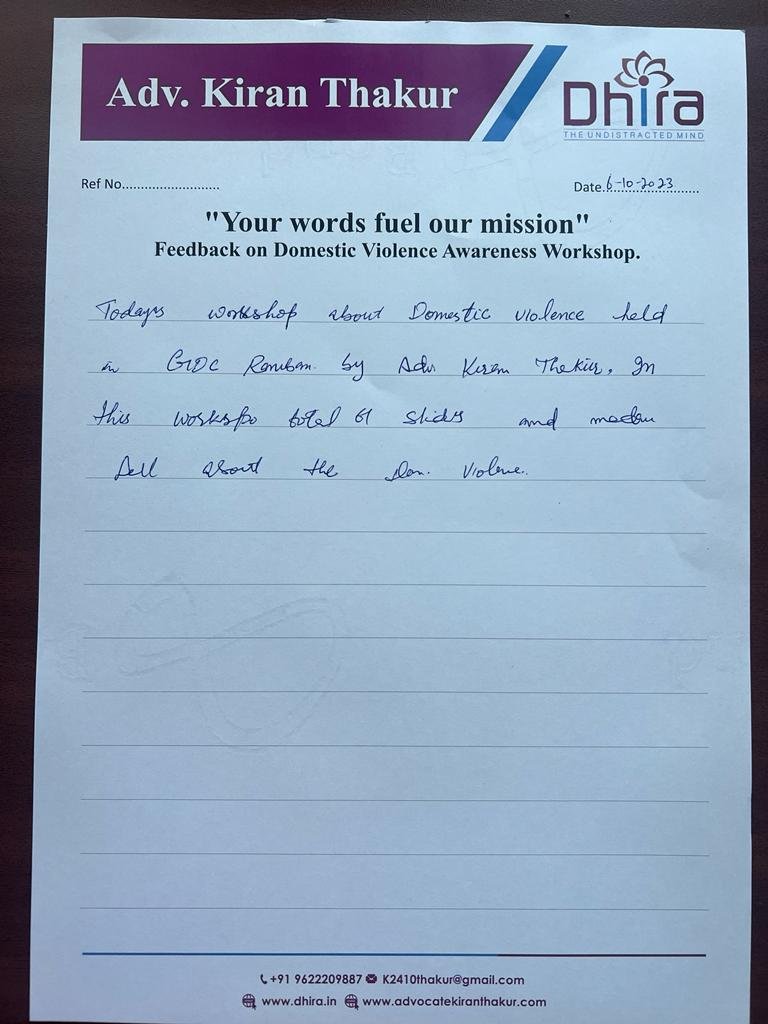 Adv. Kiran Thakur
Dhira
THE UNDISTRACTED MIND
Ref No..........................
Date.6-10-2023.......
"Your words fuel our mission"
Feedback on Domestic Violence Awareness Workshop.
Todays workshop about Domestic violence held
in GDC Ramban. by Adv. Kiran Thakur, In
this workspo total 61 slides and madam
tell about the Dom. Violence.
+91 9622209887 K2410thakur@gmail.com
www.dhira.in www.advocatekiranthakur.com